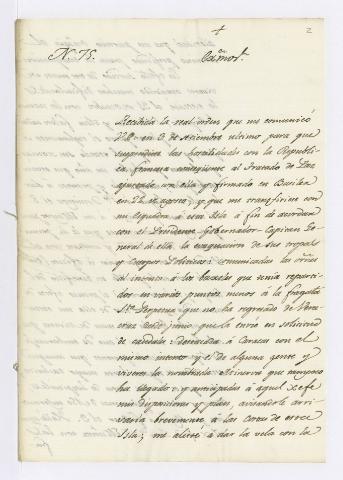 2
N. 75.
Exmo. Sor.
Recibida la real orden que me comunicó
V.E. en 3 de setiembre ultimo para que
suspendiera las hostilidades con la Republi-
ca francesa consiguiente al Tratado de Paz
ajustado con ella, y firmado en Basilea
en 22 de agosto, y que me transfiriese con
mi Esquadra á esta Isla á fin de acordar
con el Presidente Gobernador Capitan Ge-
neral de ella la evacuacion de sus tropas
y Cuerpos Politicos: comunicadas las orñs
al intento á los baxeles que tenia reparti-
dos en varios puntos menos á la fragata
Sta. que no ha regresado de Vera-
cruz desde junio que la envié en solicitud
de caudales: destinada á Caracas con el
mismo intento y el de alguna gente y
viveres la nombrada Minerva que tampoco
ha llegado: y anticipadas á aquel Xefe
mis disposiciones y plan, avisandole arri-
varia brevemente á las Costas de esta
Isla; me alisté á dar la vela con la